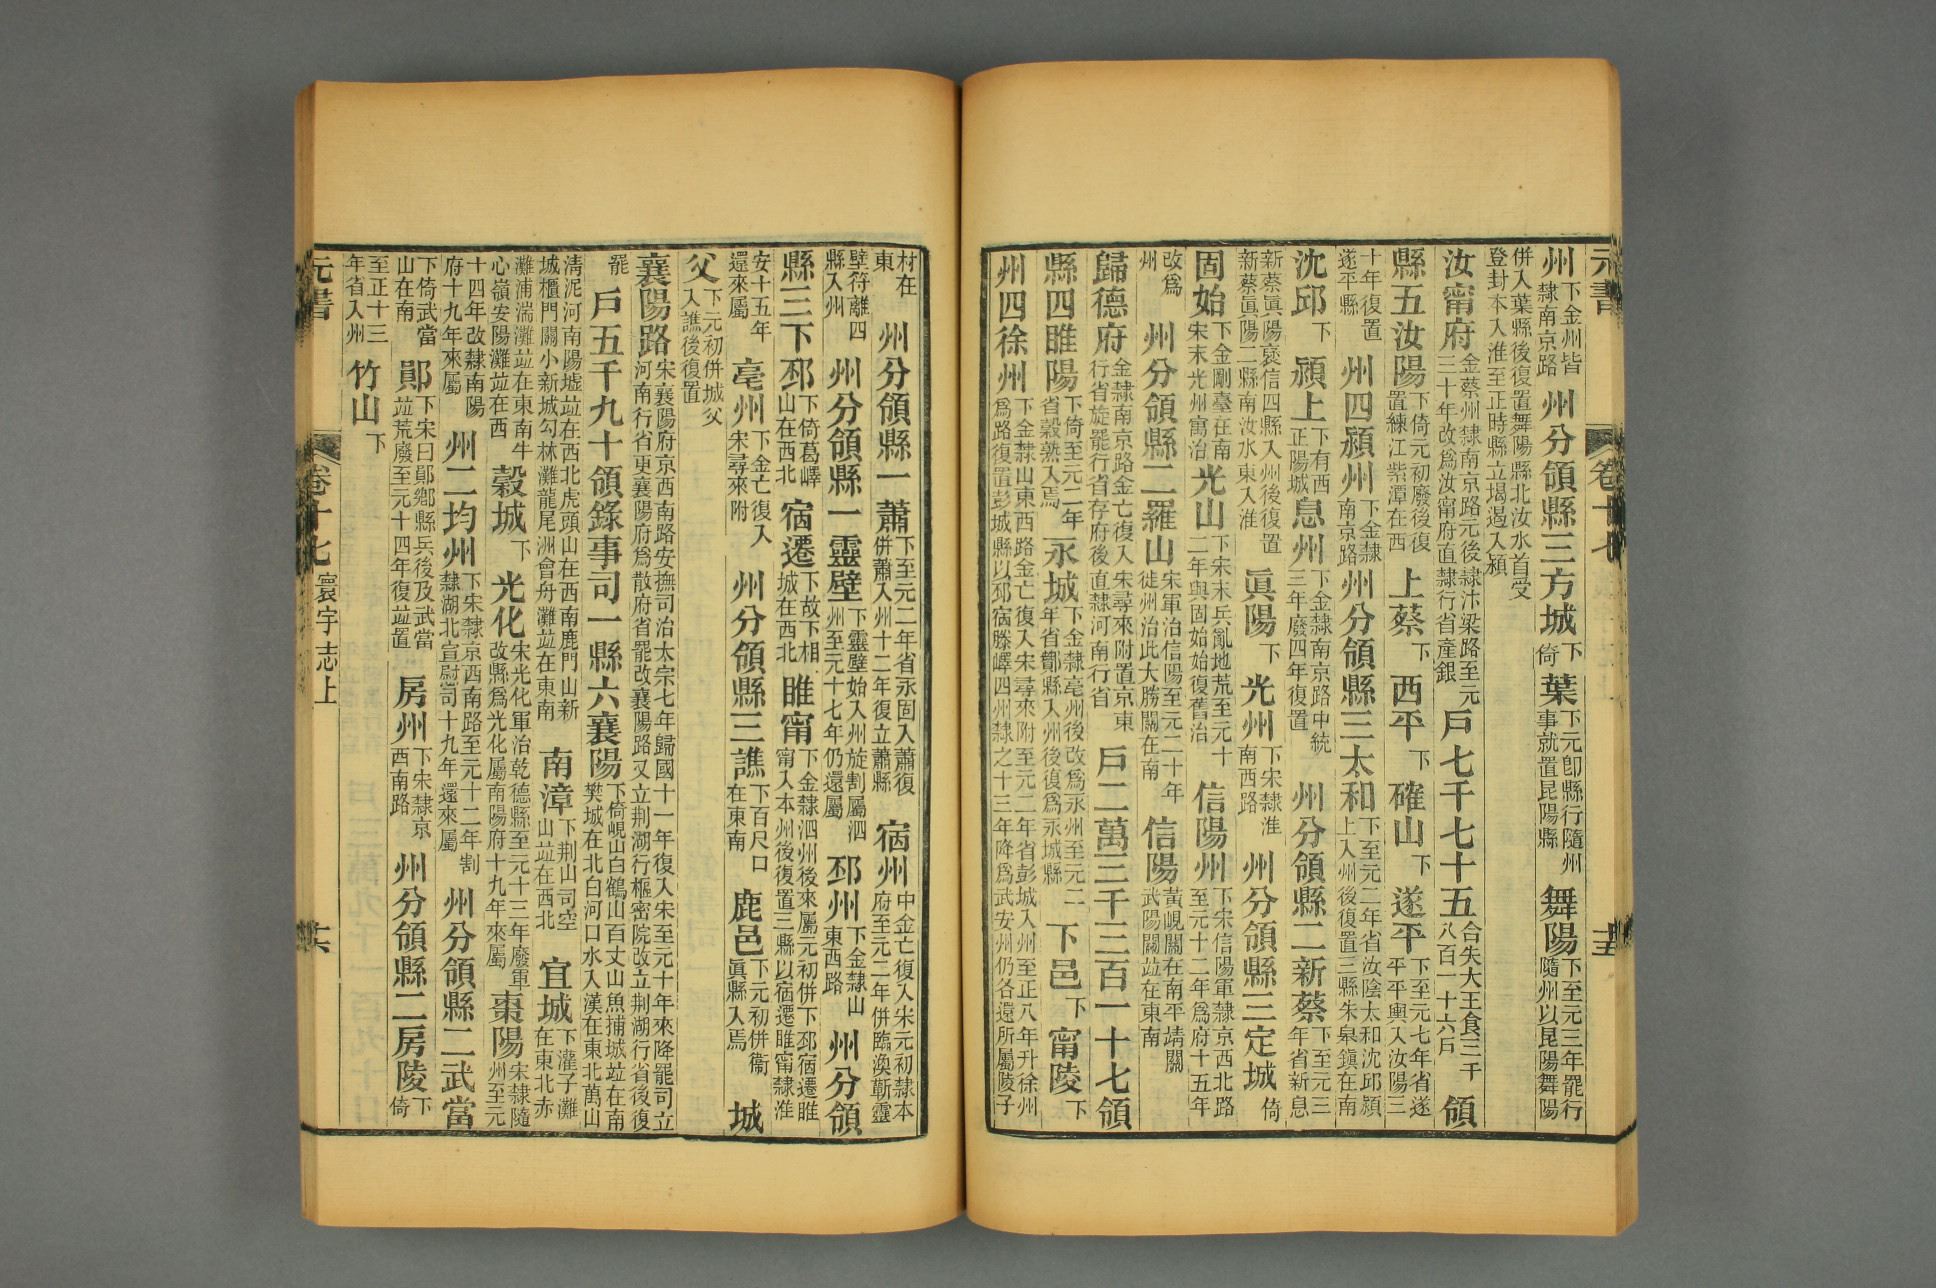 元書 卷十七 十五
州下金州皆隸南京路 州分領縣三方城下倚 葉下元卽縣行隨州事就置昆陽縣 舞陽下至元三年罷行隨州以昆陽舞陽
併入葉縣後復置舞陽縣北汝水首受登封本入淮至正時縣立堨遏入潁
汝甯府金蔡州隸南京路元後隸汴梁路至元三十年改爲汝甯府直隸行省產銀 戶七千七十五合失大王食三千八百一十六戶 領
縣五汝陽下倚元初廢後復置練江紫潭在西 上蔡下 西平下 確山下 遂平下至元七年省遂平平輿入汝陽三
十年復置遂平縣 州四潁州下金隸南京路 州分領縣三太和下至元二年省汝陰太和沈邱潁上入州後復置三縣朱皋鎭在南
沈邱下 潁上下有西正陽城 息州下金隸南京路中統三年廢四年復置 州分領縣二新蔡下至元三年省新息
新蔡眞陽褒信四縣入州後復置新蔡眞陽二縣南汝水東入淮 眞陽下 光州下宋隸淮南西路 州分領縣三定城倚
固始下金剛臺在南宋末光州寓治 光山下宋末兵亂地荒至元十二年與固始始復舊治 信陽州下宋信陽軍隸京西北路至元十二年爲府十五年
改爲州 州分領縣二羅山宋軍治信陽至元二十年徙州治此大勝關在南 信陽黃峴關在南平靖關武陽關竝在東南
歸德府金隸南京路金亡復入宋尋來附置京東行省旋罷行省存府後直隸河南行省 戶二萬三千三百一十七領
縣四睢陽下倚至元二年省穀熟入焉 永城下金隸亳州後改爲永州至元二年省酇縣入州後復爲永城縣 下邑下 甯陵下
州四徐州下金隸山東西路金亡復入宋尋來附至元二年省彭城入州至正八年升徐州爲路復置彭城縣以邳宿滕嶧四州隸之十三年降爲武安州仍各還所屬陵子
材在東 州分領縣一蕭下至元二年省永固入蕭復併蕭入州十二年復立蕭縣 宿州中金亡復入宋元初隸本府至元二年併臨渙蘄靈
壁符離四縣入州 州分領縣一靈壁下靈壁始入州旋割屬泗州至元十七年仍還屬 邳州下金隸山東西路 州分領
縣三下邳下倚葛嶧山在西北 宿遷下故下相城在西北 睢甯下金隸泗州後來屬元初併下邳宿遷睢甯入本州後復置三縣以宿遷睢甯隸淮
安十五年還來屬 亳州下金亡復入宋尋來附 州分領縣三譙下百尺口在東南 鹿邑下元初併衞眞縣入焉 城
父下元初併城父入譙後復置
襄陽路宋襄陽府京西南路安撫司治太宗七年歸國十一年復入宋至元十年來降罷司立河南行省更襄陽府爲散府省罷改襄陽路又立荆湖行樞密院改立荆湖行省後復
罷 戶五千九十領錄事司一縣六襄陽下倚峴山白鶴山百丈山魚捕城竝在南樊城在北白河口水入漢在東北萬山
淸泥河南陽墟竝在西北虎頭山在西南鹿門山新城櫃門關小新城勾林灘龍尾洲會舟灘竝在東南 南漳下荆山司空山竝在西北 宜城下灌子灘在東北赤
灘浦湍灘竝在東南牛心嶺安陽灘竝在西 穀城下 光化宋光化軍治乾德縣至元十三年廢軍改縣爲光化屬南陽府十九年來屬 棗陽宋隸隨州至元
十四年改隸南陽府十九年來屬 州二均州下宋隸京西南路至元十二年割隸湖北宣慰司十九年還來屬 州分領縣二武當
下倚武當山在南 鄖下宋曰鄖鄉縣兵後及武當竝荒廢至元十四年復竝置 房州下宋隸京西南路 州分領縣二房陵下倚
至正十三年省入州 竹山下
元書 卷十七 寰宇志上 十六